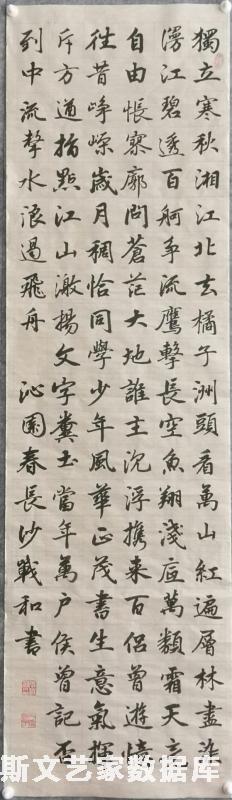 獨立寒秋湘江北去橘子洲頭看萬山紅遍層林盡染
漫江碧透百舸爭流鷹擊長空魚翔淺底萬類霜天竞
自由悵寥廓問蒼茫大地誰主沉浮携来百侶曾遊憶
往昔崢嶸歲月稠恰同學少年風華正茂書生意氣揮
斥方遒指點江山激揚文字糞土當年萬户侯曾記否
到中流擊水浪遏飛舟 沁園春長沙 戰和書
斯文艺家数据库